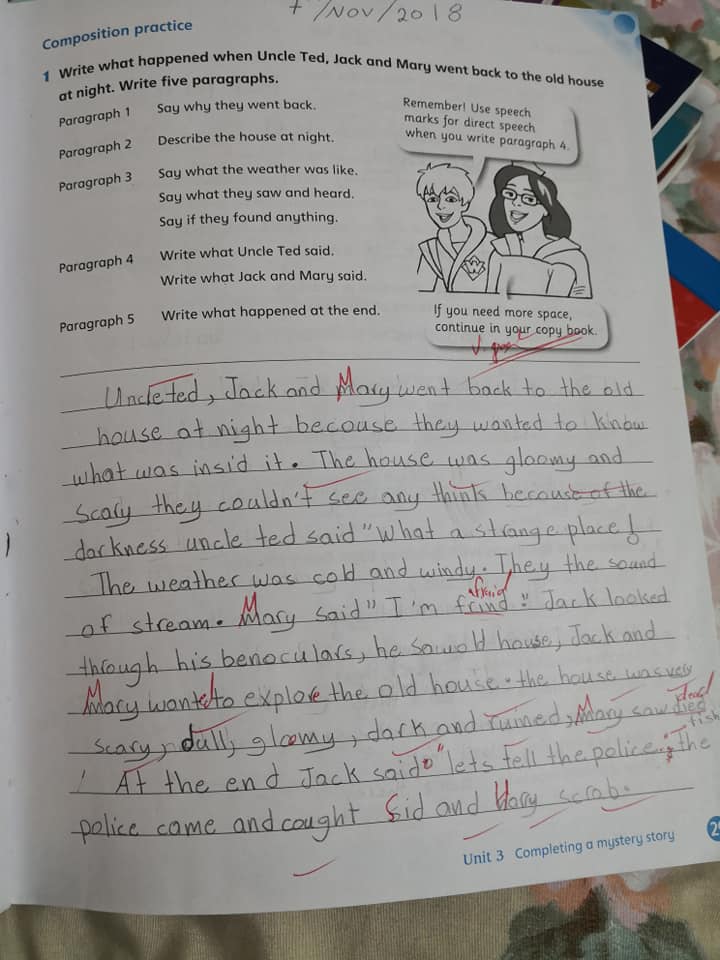 7/NOV/2018
Composition practice
1 Write what happened when Uncle Ted, Jack and Mary went back to the old house
at night. Write five paragraphs.
Paragraph 1 Say why they went back.
Paragraph 2 Describe the house at night.
Paragraph 3 Say what the weather was like.
Say what they saw and heard.
Say if they found anything.
Paragraph 4 Write what Uncle Ted said.
Write what Jack and Mary said.
Paragraph 5 Write what happened at the end.
Remember! Use speech
marks for direct speech
when you write paragraph 4.
If you need more space,
continue in your copy book.
Uncle ted, Jack and Mary went back to the old
house at night becouse they wanted to know
what was insid it. The house was gloomy and
scary they couldn't see any think because of the
darkness uncle ted said "What a strange place!
The weather was cold and windy. They the sound
afraid
of stream. Mary said "I'm frind." Jack looked
through his benoculars, he saw old house, Jack and
Mary wanted to explore the old house. the house was very
dead
scary, dull, gloomy, dark and ruined, Mary saw died
fish
At the end Jack said "lets tell the police." the
police came and cought Sid and Hary scrab.
Unit 3 Completing a mystery story